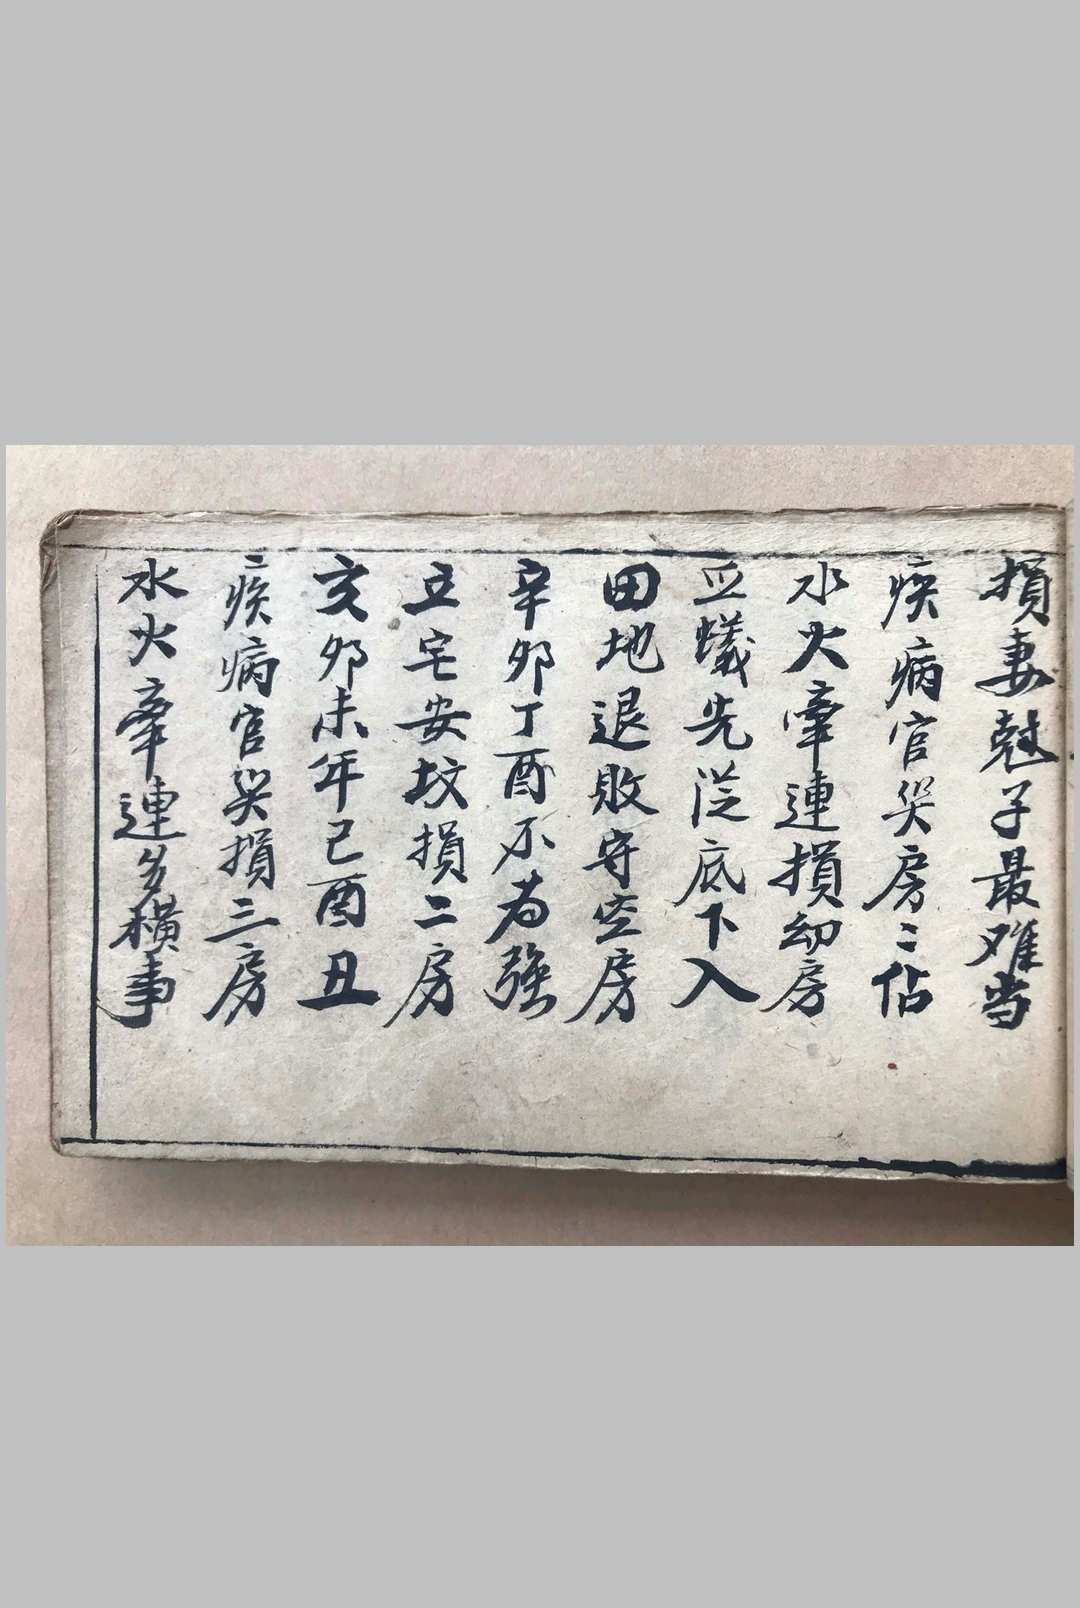 損妻尅子最难当
疾病官災房〻佔
水火牽連損幼房
虫蟻先從底下入
田地退敗守空房
辛卯丁酉不为強
立宅安坟損二房
亥卯未年己酉丑
疾病官災損三房
水火牽連多橫事